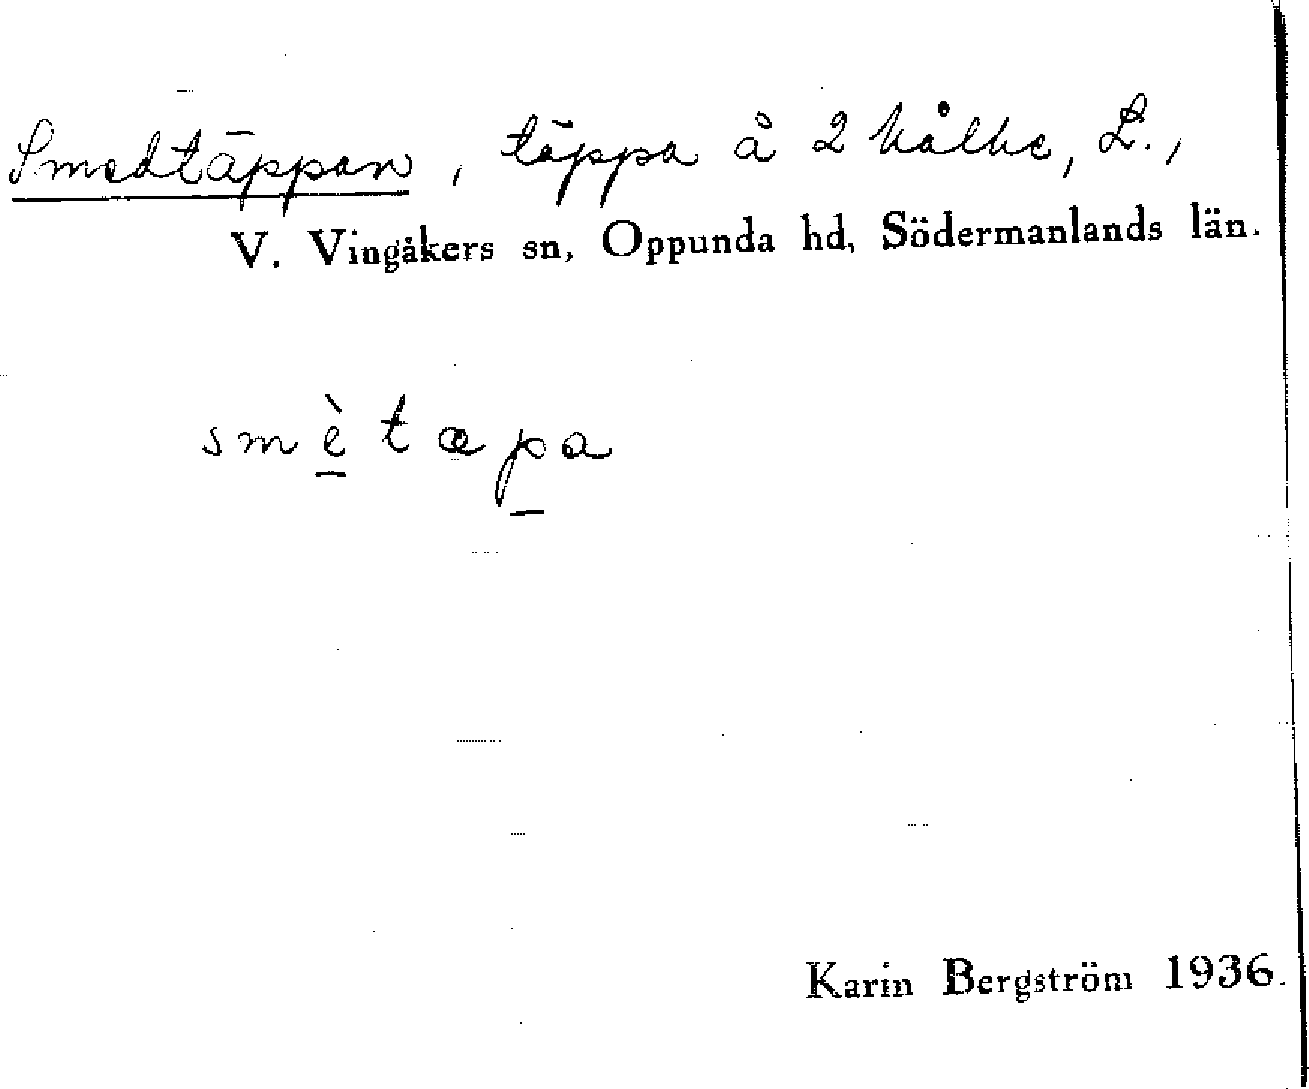 Smedtäppan, täppa å 2 Kålke, L.,
V. Vingåkers sn, Oppunda hd, Södermanlands län.
smètæpa
Karin Bergström 1936.